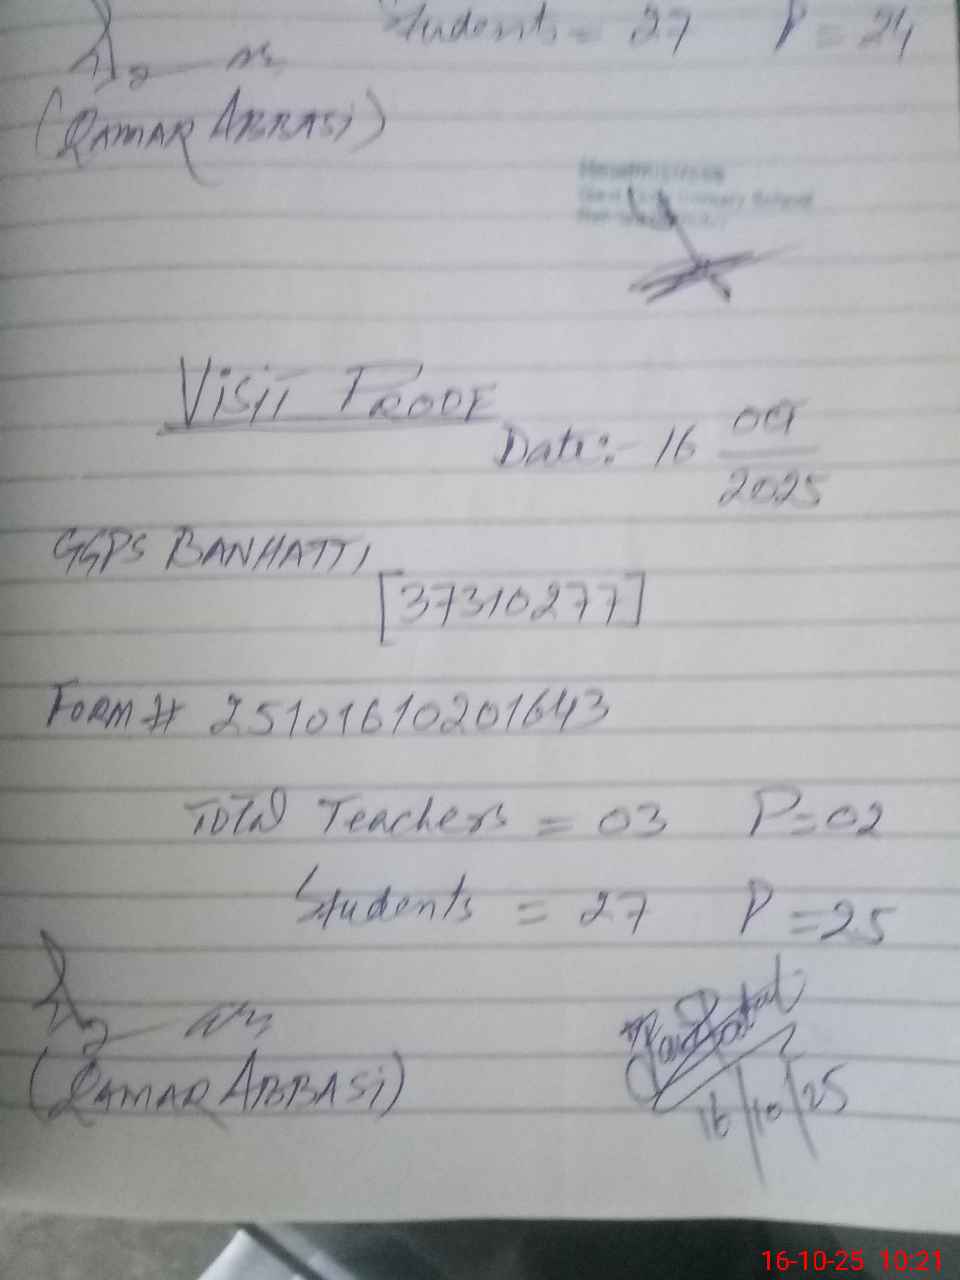 Students = 27 P = 24
(QAMAR ABBASi)
School
VISIT PROOF
Date:- 16 OCT 2025
GGPS BANHATTI
[37310277]
FORM # 25101610201643
Total Teachers = 03 P=02
Students = 27 P =25
(QAMAR ABBASi)
16/10/25
16-10-25 10:21